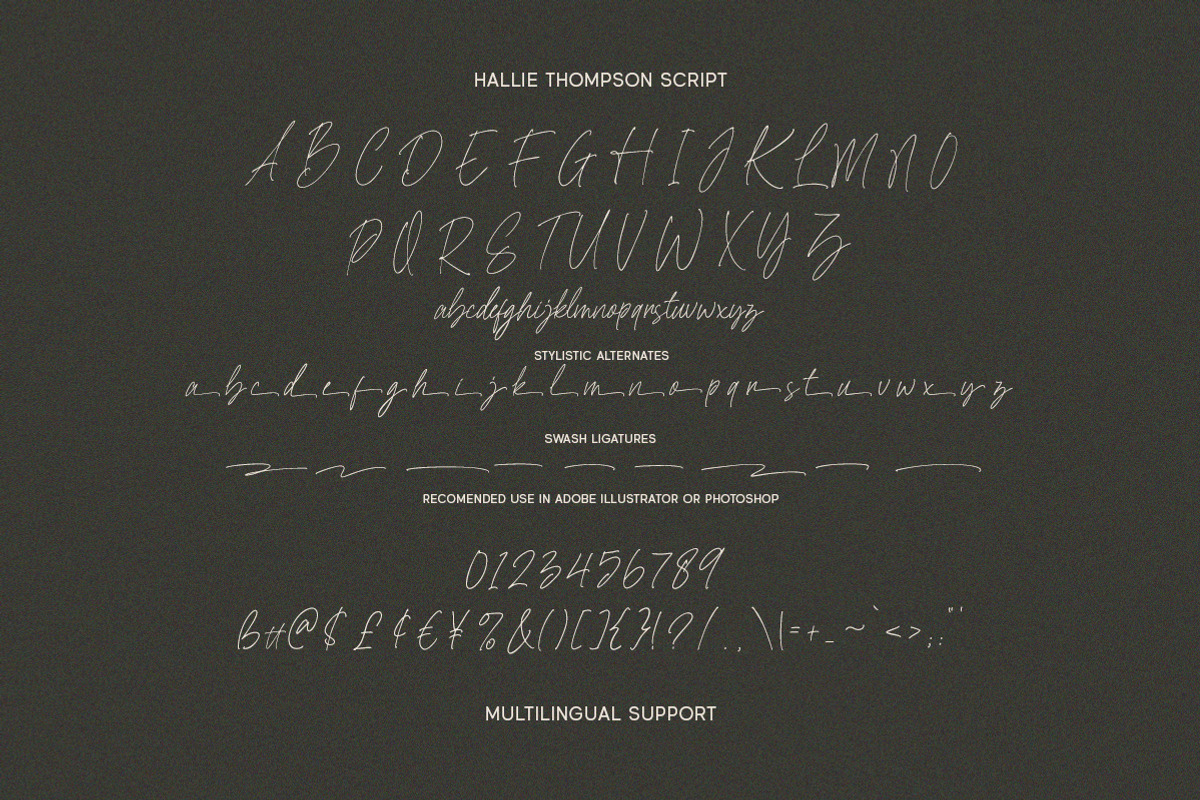 HALLIE THOMPSON SCRIPT
A B C D E F G H I J K L M N O
P Q R S T U V W X Y Z
abcdefghijklmnopqrstuvwxyz
STYLISTIC ALTERNATES
a b c d e f g h i j k l m n o p q r s t u v w x y z
SWASH LIGATURES
RECOMENDED USE IN ADOBE ILLUSTRATOR OR PHOTOSHOP
0123456789
ß#@$ £ ¢ € ¥ % &()[]{}!?/.,\|=+_~`<>;:"'
MULTILINGUAL SUPPORT